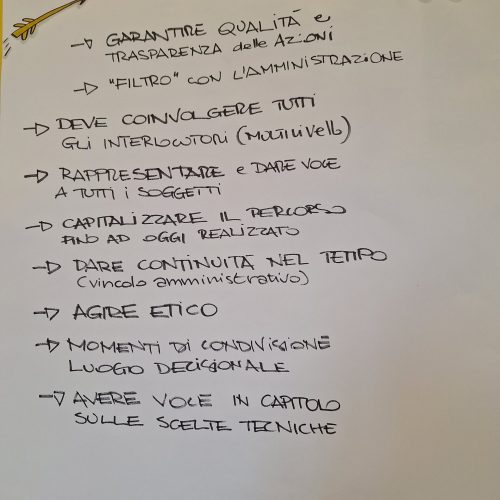 → GARANTIRE QUALITÀ e
TRASPARENZA delle AZIONI
→ "FILTRO" CON L'AMMINISTRAZIONE
→ DEVE COINVOLGERE TUTTI
GLI INTERLOCUTORI (MULTILIVELLO)
→ RAPPRESENTARE e DARE VOCE
A TUTTI i SOGGETTI
→ CAPITALIZZARE IL PERCORSO
FINO AD OGGI REALIZZATO
→ DARE CONTINUITÀ NEL TEMPO
(vincolo amministrativo)
→ AGIRE ETICO
→ MOMENTI DI CONDIVISIONE
LUOGO DECISIONALE
→ AVERE VOCE IN CAPITOLO
SULLE SCELTE TECNICHE